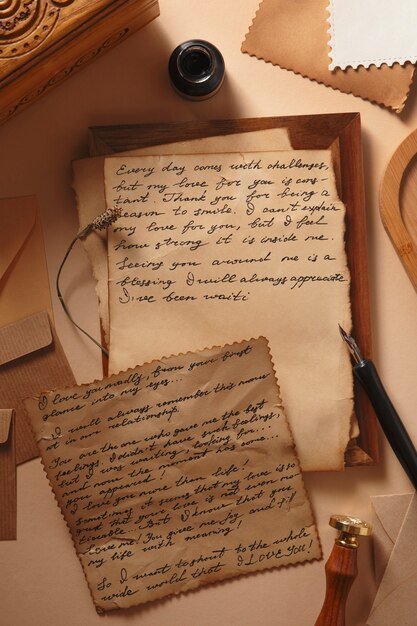 Every day comes with challenges,
but my love for you is cons-
tant. Thank you for being a
reason to smile. I can't explain
my love for you, but I feel
how strong it is inside me.
Seeing you around me is a
blessing I will always appreciate
I've been waiti
I love you madly, from your first
glance into my eyes...
I will always remember this moment
in our relationship.
You are the one who gave me the best
feelings, I didn't have such feelings,
but I was waiting, looking for...
and now the moment has come...
you appeared!
I love you more than life!
Sometimes it seems that my love is so
that your love is not even no-
ticeable. But I know that you
Love me! You give me joy and fill
my life with meaning!
So I want to shout to the whole
wide world that I LOVE YOU!